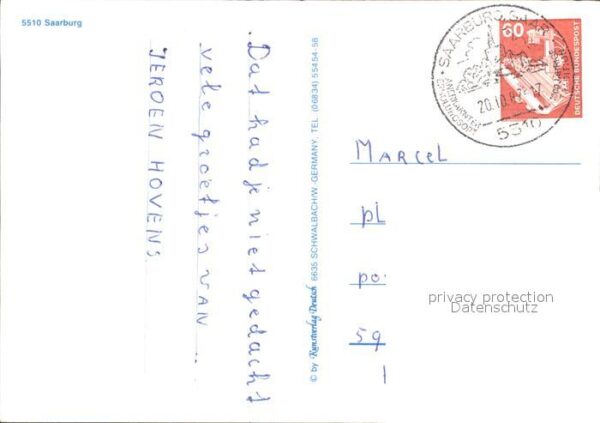 5510 Saarburg
. Dat had je niet gedacht
vele groetjes VAN ...
JEROEN HOVENS.
© by Kunstverlag Deutsch 6635 SCHWALBACH/W.-GERMANY, TEL. (06834) 55454-56
60
DEUTSCHE BUNDESPOST
SAARBURG, SAAR
ANERKANNTER
ERHOLUNGSORT
20.10.8
5510
MARCEL
pl
po.
59
privacy protection
Datenschutz